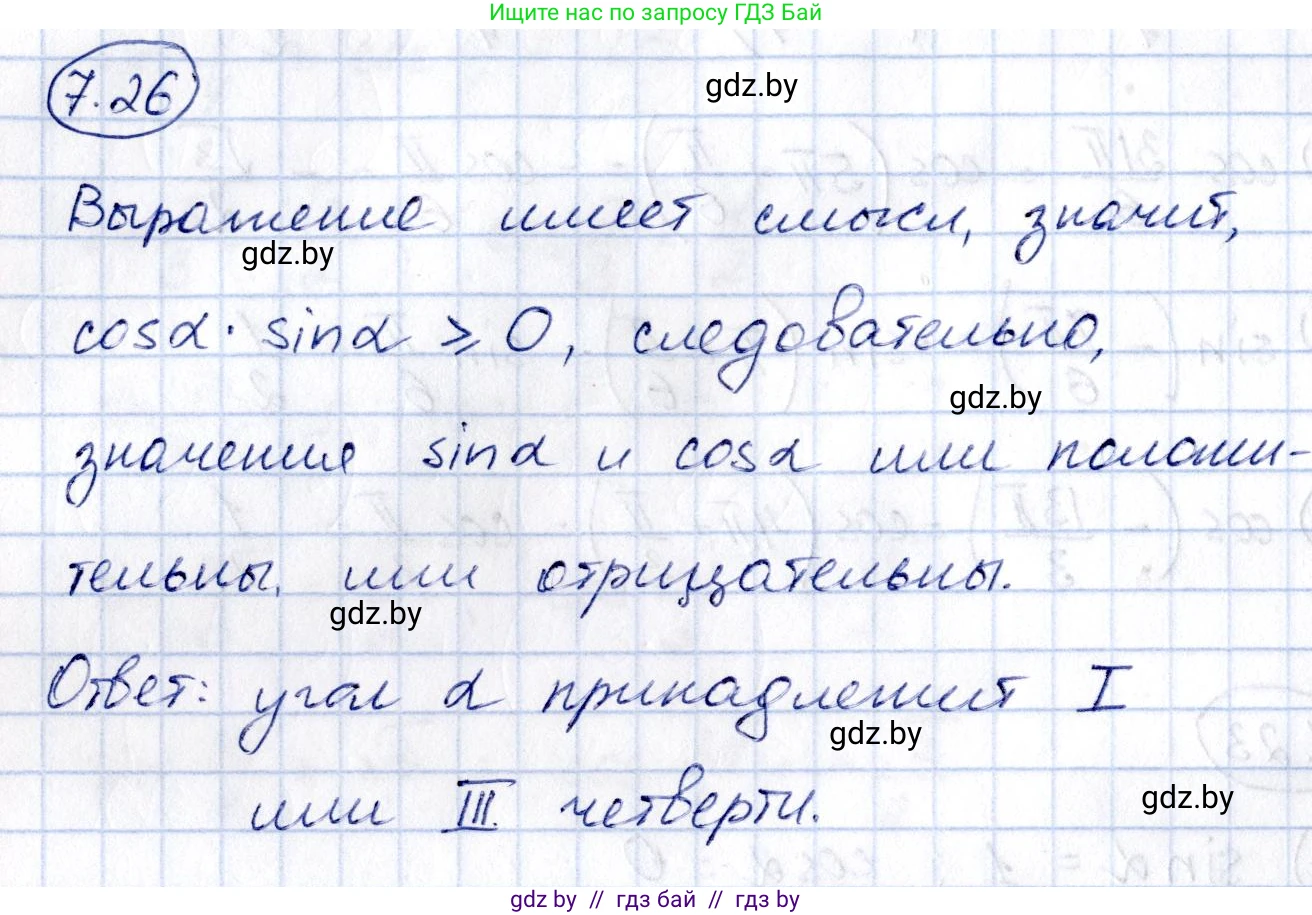 Ищите нас по запросу ГДЗ Бай
7.26
gdz.by
Выражение имеет смысл, значит,
gdz.by
cosα · sinα ⩾ 0, следовательно,
gdz.by
значения sinα и cosα или положи-
тельны, или отрицательны.
gdz.by
Ответ: угол α принадлежит I
gdz.by
или III четверти.
gdz.by
gdz.by // гдз бай // gdz.by